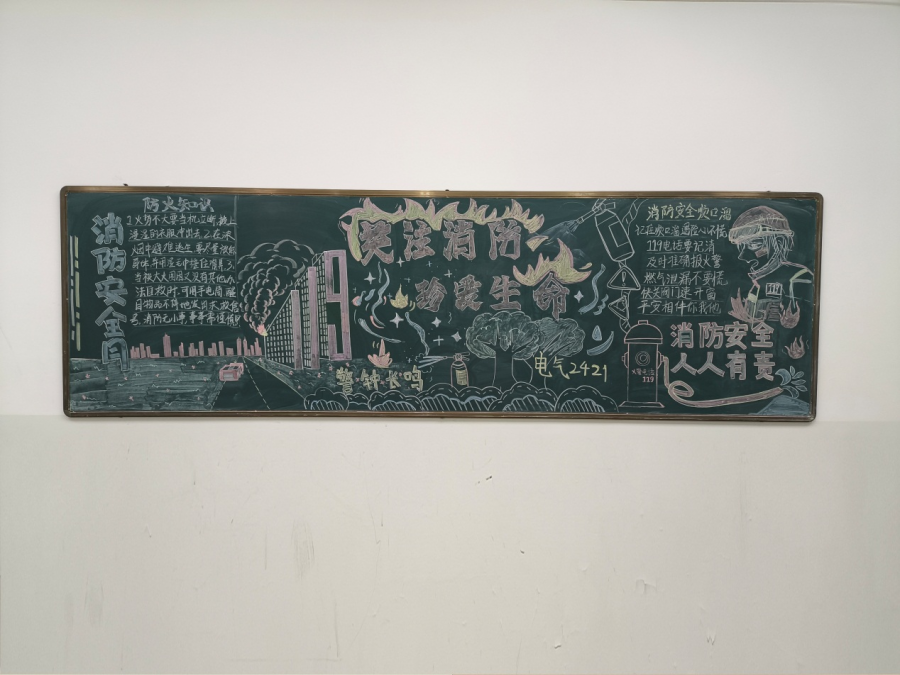 消防安全同
防火知识
1.火势不大要当机立断,披上
浸湿的衣服冲出去.2.在浓
烟中避难逃生,要尽量放低
身体,并用湿毛巾捂住嘴鼻.3.
法自救时,可用手电筒、醒
目物品不停地发出呼救信
号.消防无小事,事事需谨慎
119
关注消防
珍爱生命
警钟长鸣
电气2421
火警电话
119
消防安全顺口溜
119电话要记清
及时准确报火警
燃气泄漏不要慌
快关阀门速开窗
平安相伴你我他
119
消防安全
人人有责